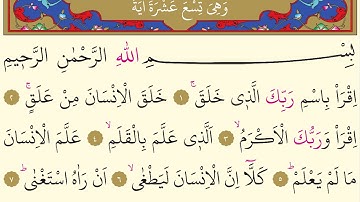 وَهِيَ تِسْعَ عَشْرَةَ اٰيَةً
بِسْمِ اللّٰهِ الرَّحْمٰنِ الرَّحٖيمِ
اِقْرَأْ بِاسْمِ رَبِّكَ الَّذٖي خَلَقَۚ ﴿١﴾ خَلَقَ الْاِنْسَانَ مِنْ عَلَقٍۚ ﴿٢﴾
اِقْرَأْ وَرَبُّكَ الْاَكْرَمُۙ ﴿٣﴾ اَلَّذٖي عَلَّمَ بِالْقَلَمِۙ ﴿٤﴾ عَلَّمَ الْاِنْسَانَ
مَا لَمْ يَعْلَمْؕ ﴿٥﴾ كَلَّٓا اِنَّ الْاِنْسَانَ لَيَطْغٰىۙ ﴿٦﴾ اَنْ رَاٰهُ اسْتَغْنٰىؕ ﴿٧﴾